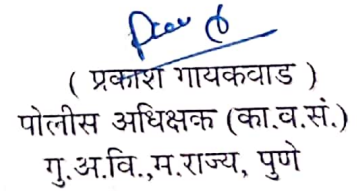 ( प्रकाश गायकवाड )
पोलीस अधिक्षक (का.व.सं.)
गु.अ.वि.,म.राज्य, पुणे